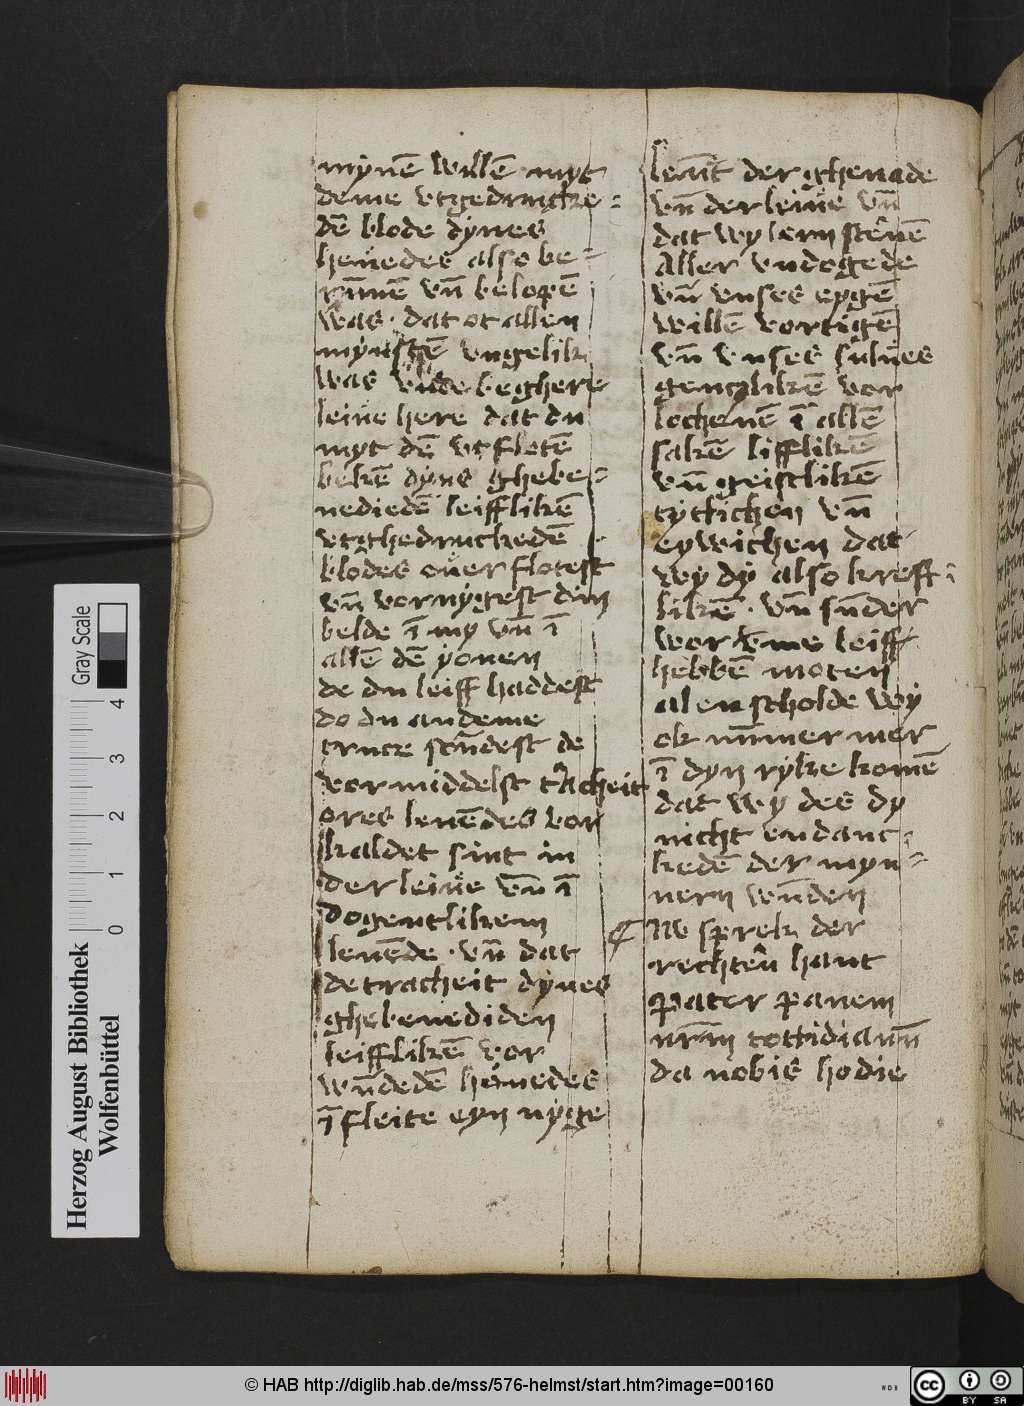 mynē willē myt
deme vtgedrucke=
dē blode dynes
heuedes also be=
rūnē vn̄ belopē
was · dat ot allen
mynschē vngelik
was vnde beghere
leiue here dat du
myt dē vtflotē
bekē dyns ghebe=
nediedē leifflikē
vtghedruckedē
blodes ouerflotest
vn̄ vornygest din
belde ī my vn̄ ī
allē dē yonen
de du leiff haddest
do du an deme
cruce stūdest de
vormiddelst tracheit
ores leuēdes vor
kaldet sint in
der leiue vn̄ ī
dogentlikem
leuēde · vn̄ dat
de tracheit dynes
ghebenediden
leifflikē vor
wūdedē heuedes
ī fleite eyn nyge
der ghenade
vn̄ der leiue vn̄
dat wy lern steruē
Aller vndogede
vn̄ vnses eygē
willē vortigē
vn̄ vnses sulues
gentzlikē vor
lochenē ī allē
sakē liffikē
vn̄ geistlikē
tytlichen vn̄
eywichen dat
wy dy also kreff=
likē · vn̄ sūder
wor vme leiff
hebbē moten
al en scholde wy
ok nūmer mer
ī dyn ryke komē
dat wy des dy
nicht en danc=
kedē der myn=
nern wūden
Nv sprek der
rechtē hant
Pater panem
nrm̄ cottidianū
da nobis hodie
Herzog August Bibliothek
Wolfenbüttel
0 1 2 3 4
Gray Scale
© HAB http://diglib.hab.de/mss/576-helmst/start.htm?image=00160
cc BY SA